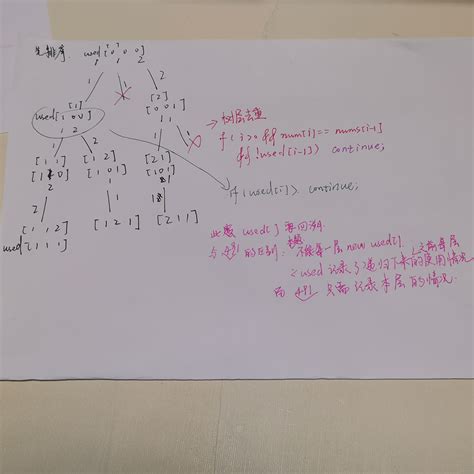 先排序. used[0 0 0]
1 1 2
[1]
used[1 0 0]
[2]
[0 0 1]
1 2
1 1
[1 1]
[1 1 0]
[1 2]
[1 0 1]
[2 1]
[1 0 1]
2 2 1
[1 1 2]
used[1 1 1]
[1 2 1]
[2 1 1]
→ 树层去重
if (i>0 && nums[i]==nums[i-1]
&& !used[i-1]) continue;
if(used[i]) continue;
此题 used[] 要回溯
与491的区别: 不能每一层 new used[],
之used 记录了递归下来的使用情况
而 491 只需记录本层的情况.